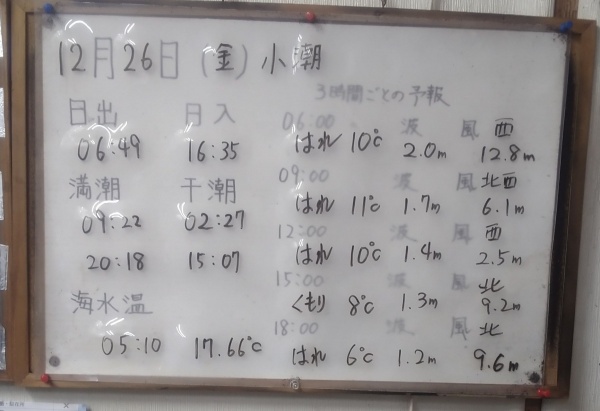 12月26日(金)小潮
日出 日入
06:49 16:35
満潮 干潮
09:22 02:27
20:18 15:07
海水温
05:10 17.66℃
3時間ごとの予報
06:00 波 風 西
はれ 10℃ 2.0m 12.8m
09:00 波 風 北西
はれ 11℃ 1.7m 6.1m
12:00 波 風 西
はれ 10℃ 1.4m 2.5m
15:00 波 風 北
くもり 8℃ 1.3m 9.2m
18:00 波 風 北
はれ 6℃ 1.2m 9.6m